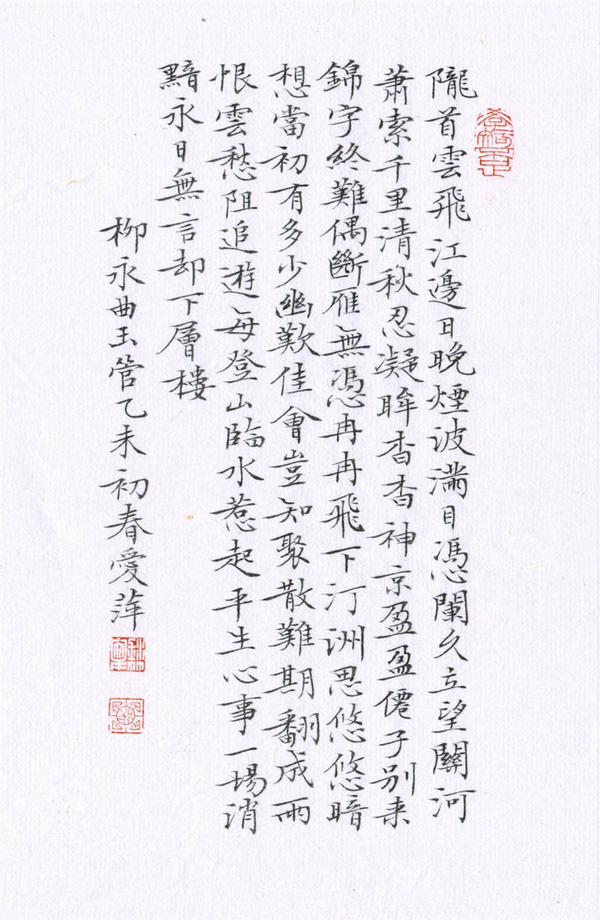 隴首雲飛江邊日晚煙波滿目憑闌久立望關河
蕭索千里清秋忍凝眸杳杳神京盈盈僊子別来
錦字終難偶斷雁無憑冉冉飛下汀洲思悠悠暗
想當初有多少幽歡佳會豈知聚散難期翻成雨
恨雲愁阻追遊每登山臨水惹起平生心事一場消
黯永日無言却下層樓
柳永曲玉管乙未初春愛萍